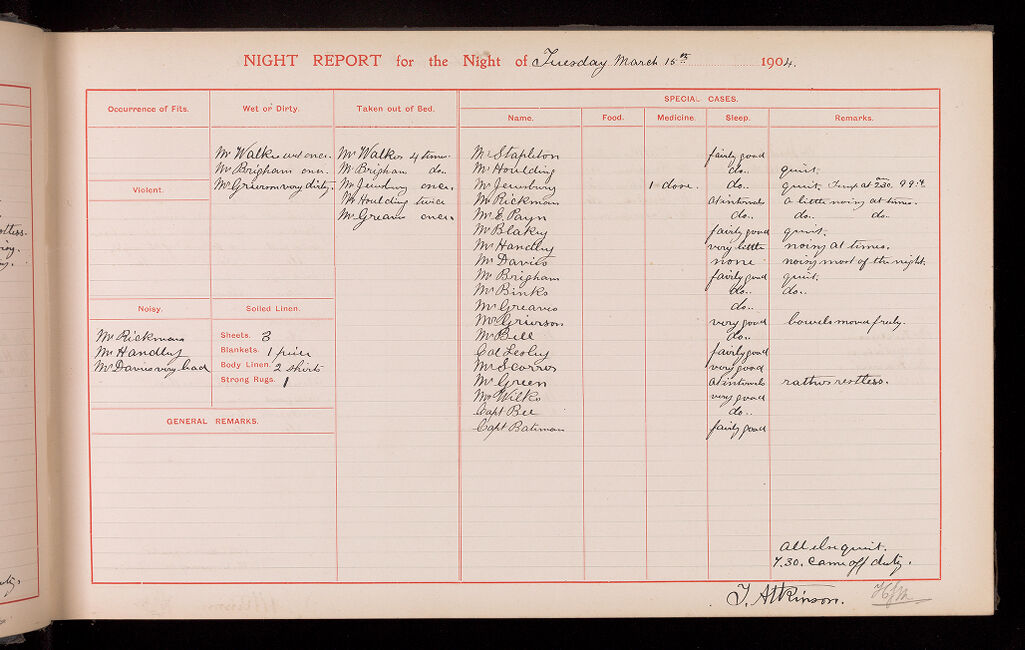 NIGHT REPORT for the Night of Tuesday March 15th 1904.
Occurrence of Fits.
Wet or Dirty.
Taken out of Bed.
SPECIAL CASES.
Name.
Food.
Medicine.
Sleep.
Remarks.
Mr Walker wet once.
Mr Brigham once.
Mr Grierson very dirty.
Mr Walker 4 times.
Mr Brigham do..
Mr Jewsbury once.
Mr Houlding twice
Mr Greaves once.
Violent.
Noisy.
Mr Rickman
Mr Handley
Mr Davies very bad
Soiled Linen.
Sheets. 3
Blankets. 1 piece
Body Linen. 2 shirts
Strong Rugs. 1
GENERAL REMARKS.
Mr Stapleton fairly good
Mr Houlding do.. quiet.
Mr Jewsbury 1 dose. do.. quiet. Temp at 2.30 am 99.4
Mr Rickman at intervals a little noisy at times.
Mr E. Payn do.. do.. do..
Mr Blakey fairly good quiet.
Mr Handley very little noisy at times.
Mr Davies none noisy most of the night.
Mr Brigham fairly good quiet.
Mr Binks do.. do..
Mr Greaves do..
Mr Grierson very good bowels moved freely.
Mr Bell do..
Col Lesley fairly good
Mr Scorror very good
Mr Green at intervals rather restless.
Mr Wilks very good
Capt Bee do..
Capt Bateman fairly good
All else quiet.
7.30. Came off duty.
T. Atkinson.